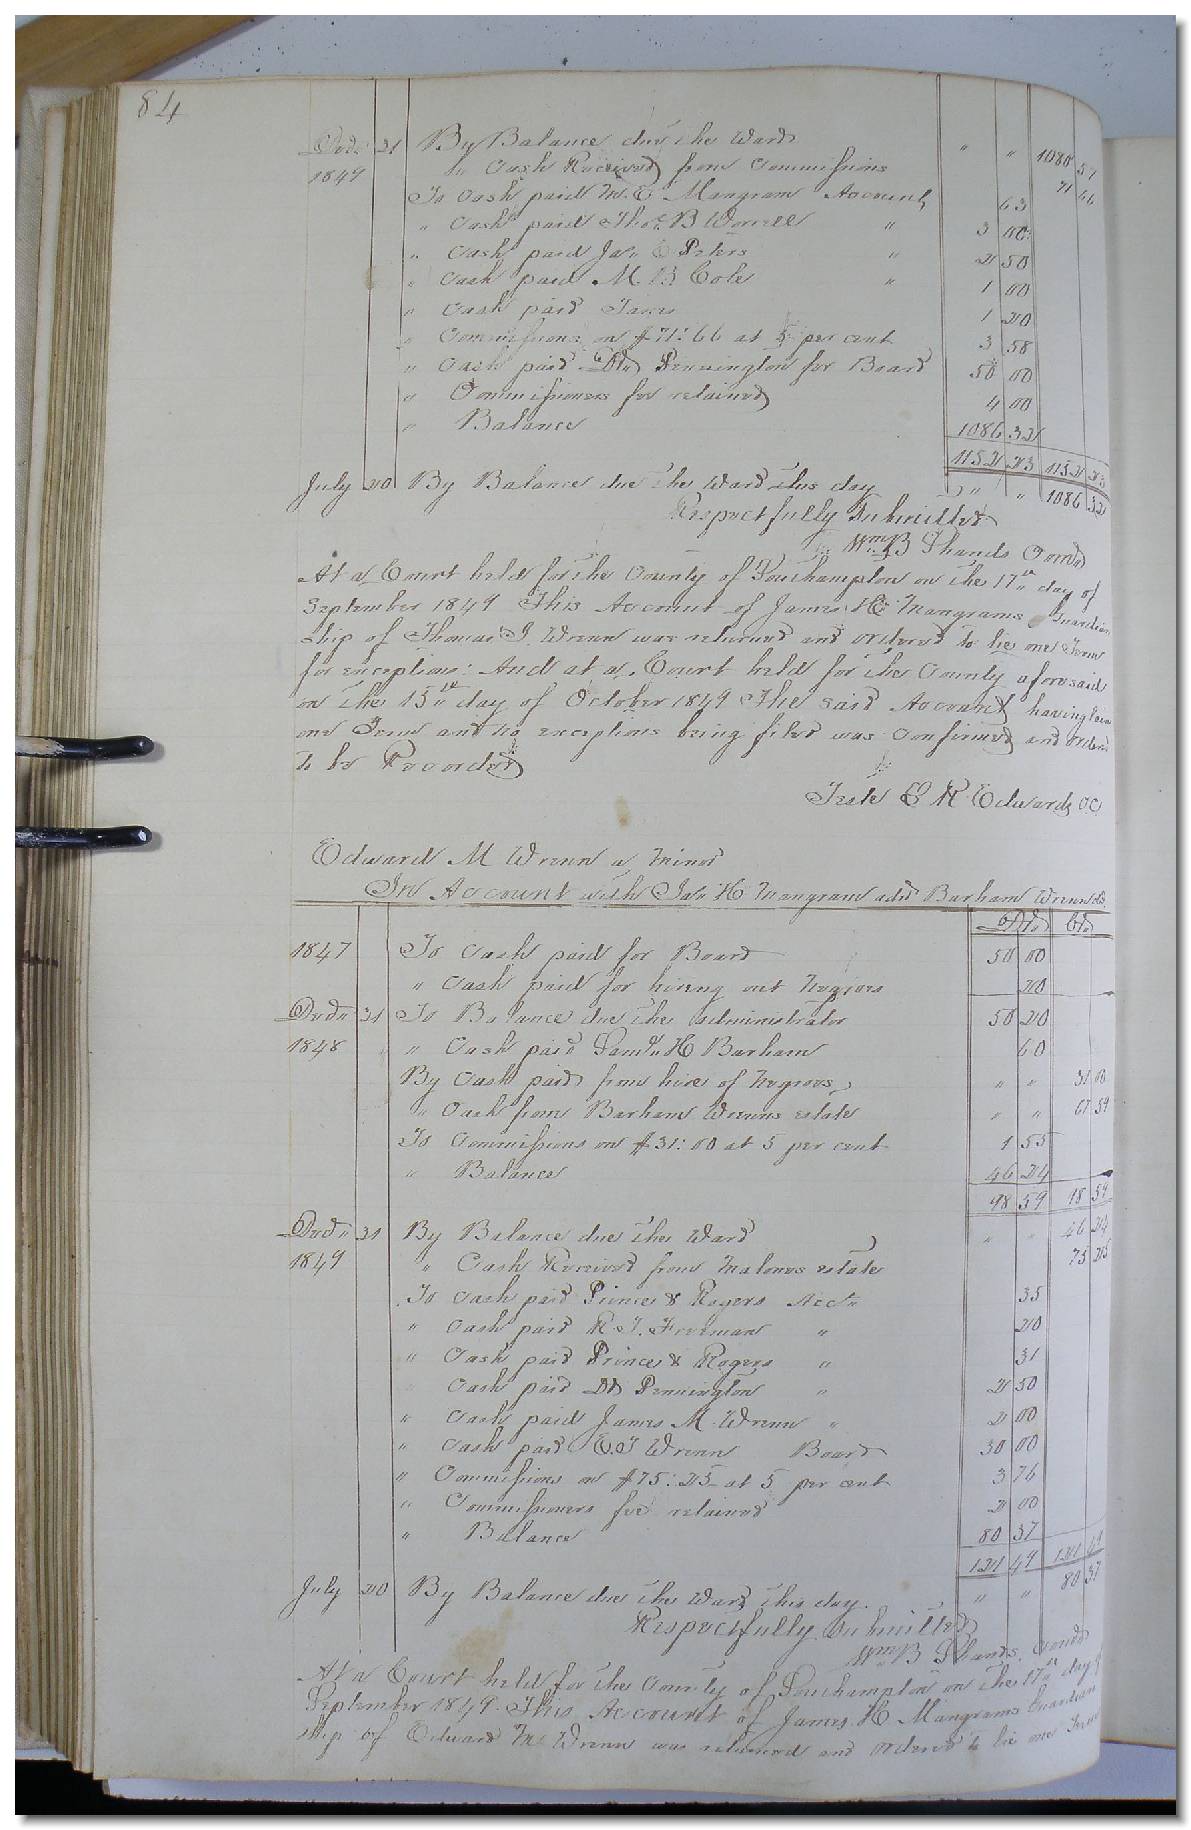 84
Decr 31 By Balance due the Ward " " 1080 57
1849 " Cash Received from Commissions 71 66
To Cash paid M. E. Mangram Account 63
" Cash paid Thos. B Worrell " 3 00
" Cash paid Jas E Peters " 2 50
" Cash paid M. B. Cole " 1 00
" Cash paid Taxes 1 20
" Commissions on $71:66 at 5 per cent 3 58
" Cash paid Pennington for Board 50 00
" Commissioners fee retained 4 00
" Balance 1086 32
1152 23 1152 23
July 20 By Balance due the Ward this day " " 1086 32
Respectfully Submitted
Wm B Shands Comd
At a Court held for the County of Southampton on the 17th day of
September 1849 This Account of James H Mangrams Guardian
ship of Thomas J. Wrenn was returned and ordered to lie one Term
for exceptions: And at a Court held for the County aforesaid
on the 15th day of October 1849 The said Account having lain
one Term and no exceptions being filed was Confirmed and ordered
to be Recorded
Teste L R Edwards C.C.
Edward M Wrenn a Minor
In Account with Jas H Mangram adr Barham Wrenn
Dr Cr
1847 To Cash paid for Board 50 00
" Cash paid for hiring out Negroes 20
Decr 31 To Balance due the administrator 50 20
1848 " Cash paid Saml H Barham 60
By Cash paid from hire of Negroes " " 31 00
" Cash from Barham Wrenns estate " " 67 59
To Commissions on $31:00 at 5 per cent 1 55
" Balance 46 24
98 59 98 59
Decr 31 By Balance due the Ward " " 46 24
1849 " Cash Received from Malones estate 75 25
To Cash paid Prince & Rogers Acct 35
" Cash paid R. T. Freeman " 20
" Cash paid Prince & Rogers " 31
Cash paid Dr Pennington " 2 50
" Cash paid James M. Wrenn " 2 00
" Cash paid E. T Wrenn Board 30 00
" Commissions on $75:25 at 5 per cent 3 76
" Commissioners fee retained 2 00
" Balance 80 37
121 49 121 49
July 20 By Balance due the Ward this day. " " 80 37
Respectfully Submitted
Wm B Shands, Comd
At a Court held for the County of Southampton on the 17th day of
September 1849. This Account of James H Mangrams Guardian
ship of Edward M Wrenn was returned and ordered to lie one Term